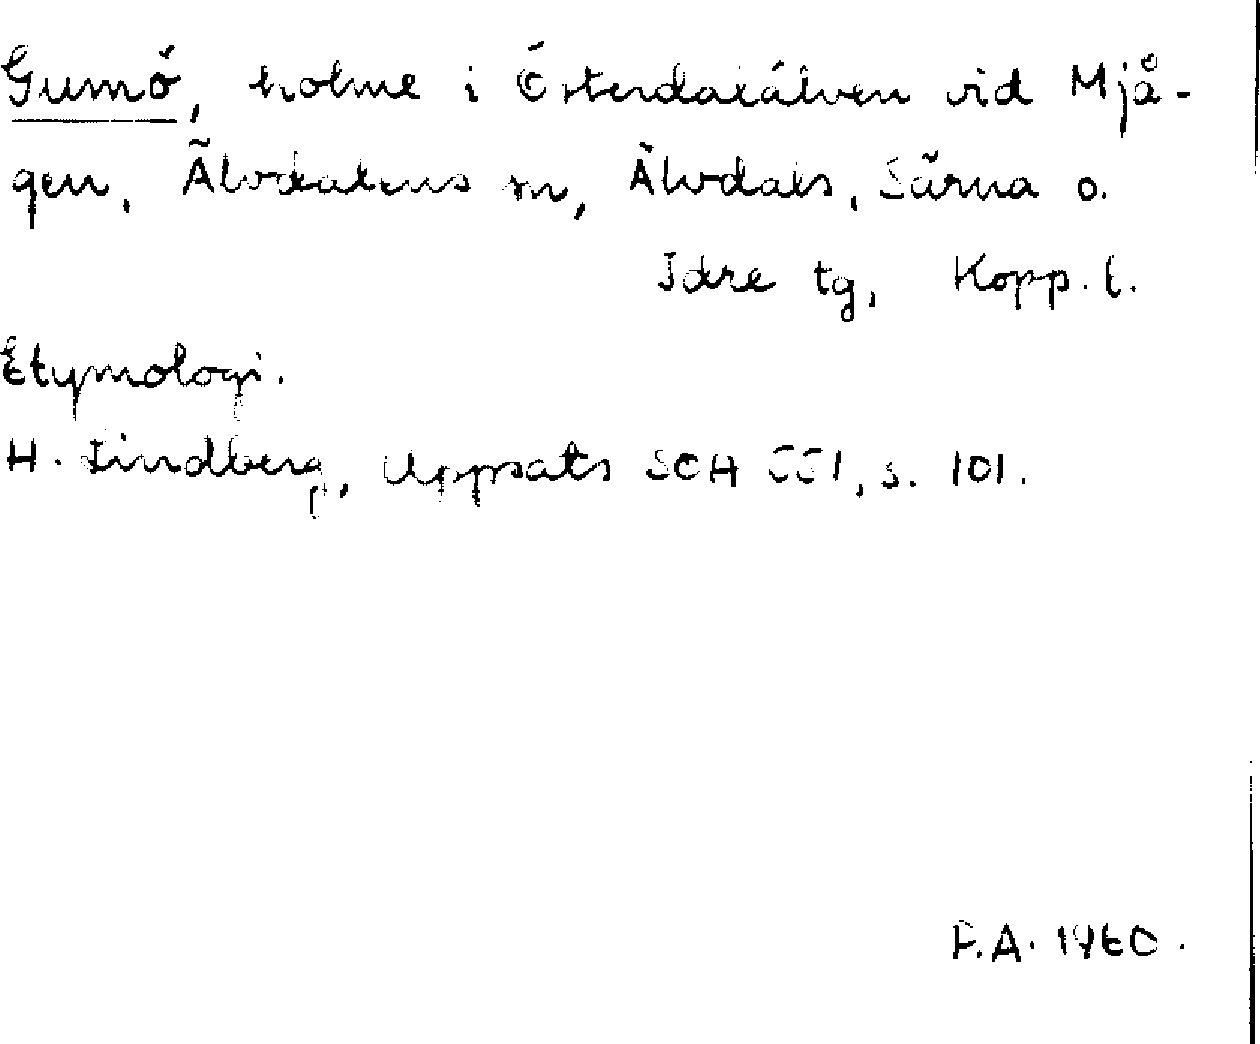 Gumö, holme i Österdalälven vid Mjå-
gen, Älvdalens sn, Älvdals, Särna o.
Idre tg, Kopp. l.
Etymologi.
H. Lindberg, Uppsats SOH 551, s. 101.
P.A. 1960.